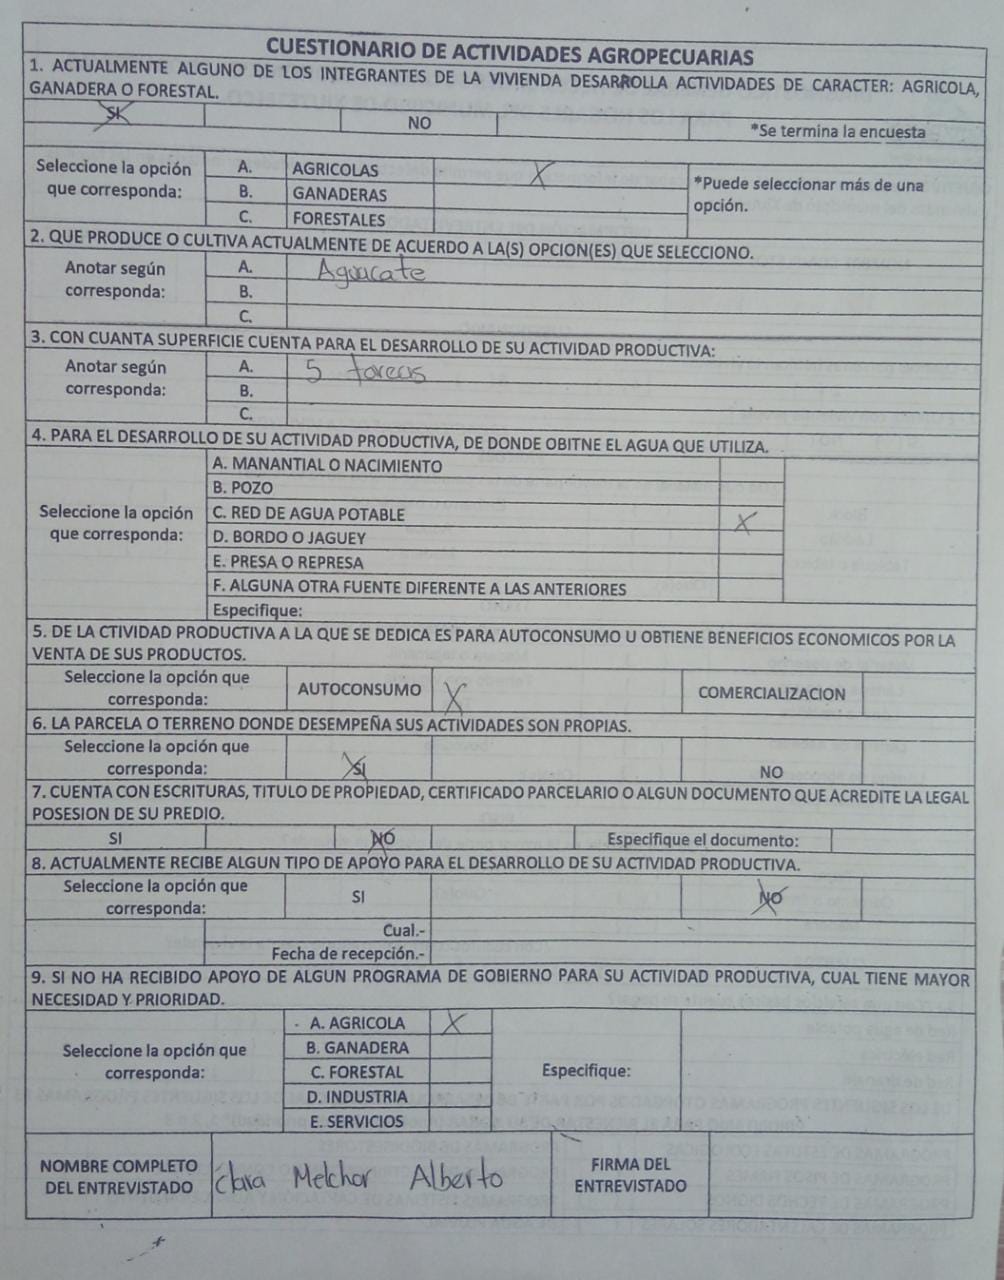 CUESTIONARIO DE ACTIVIDADES AGROPECUARIAS
1. ACTUALMENTE ALGUNO DE LOS INTEGRANTES DE LA VIVIENDA DESARROLLA ACTIVIDADES DE CARACTER: AGRICOLA,
GANADERA O FORESTAL.
SI NO *Se termina la encuesta
Seleccione la opción que corresponda:
A. AGRICOLAS X
B. GANADERAS
C. FORESTALES
*Puede seleccionar más de una
opción.
2. QUE PRODUCE O CULTIVA ACTUALMENTE DE ACUERDO A LA(S) OPCION(ES) QUE SELECCIONO.
Anotar según
corresponda:
A. Aguacate
B.
C.
3. CON CUANTA SUPERFICIE CUENTA PARA EL DESARROLLO DE SU ACTIVIDAD PRODUCTIVA:
Anotar según
corresponda:
A. 5 tareas
B.
C.
4. PARA EL DESARROLLO DE SU ACTIVIDAD PRODUCTIVA, DE DONDE OBITNE EL AGUA QUE UTILIZA.
Seleccione la opción
que corresponda:
A. MANANTIAL O NACIMIENTO
B. POZO
C. RED DE AGUA POTABLE X
D. BORDO O JAGUEY
E. PRESA O REPRESA
F. ALGUNA OTRA FUENTE DIFERENTE A LAS ANTERIORES
Especifique:
5. DE LA CTIVIDAD PRODUCTIVA A LA QUE SE DEDICA ES PARA AUTOCONSUMO U OBTIENE BENEFICIOS ECONOMICOS POR LA
VENTA DE SUS PRODUCTOS.
Seleccione la opción que
corresponda:
AUTOCONSUMO X COMERCIALIZACION
6. LA PARCELA O TERRENO DONDE DESEMPEÑA SUS ACTIVIDADES SON PROPIAS.
Seleccione la opción que
corresponda:
SI NO
7. CUENTA CON ESCRITURAS, TITULO DE PROPIEDAD, CERTIFICADO PARCELARIO O ALGUN DOCUMENTO QUE ACREDITE LA LEGAL
POSESION DE SU PREDIO.
SI NO Especifique el documento:
8. ACTUALMENTE RECIBE ALGUN TIPO DE APOYO PARA EL DESARROLLO DE SU ACTIVIDAD PRODUCTIVA.
Seleccione la opción que
corresponda:
SI NO
Cual.-
Fecha de recepción.-
9. SI NO HA RECIBIDO APOYO DE ALGUN PROGRAMA DE GOBIERNO PARA SU ACTIVIDAD PRODUCTIVA, CUAL TIENE MAYOR
NECESIDAD Y PRIORIDAD.
Seleccione la opción que
corresponda:
A. AGRICOLA X
B. GANADERA
C. FORESTAL
D. INDUSTRIA
E. SERVICIOS
Especifique:
NOMBRE COMPLETO
DEL ENTREVISTADO
Clara Melchor Alberto
FIRMA DEL
ENTREVISTADO